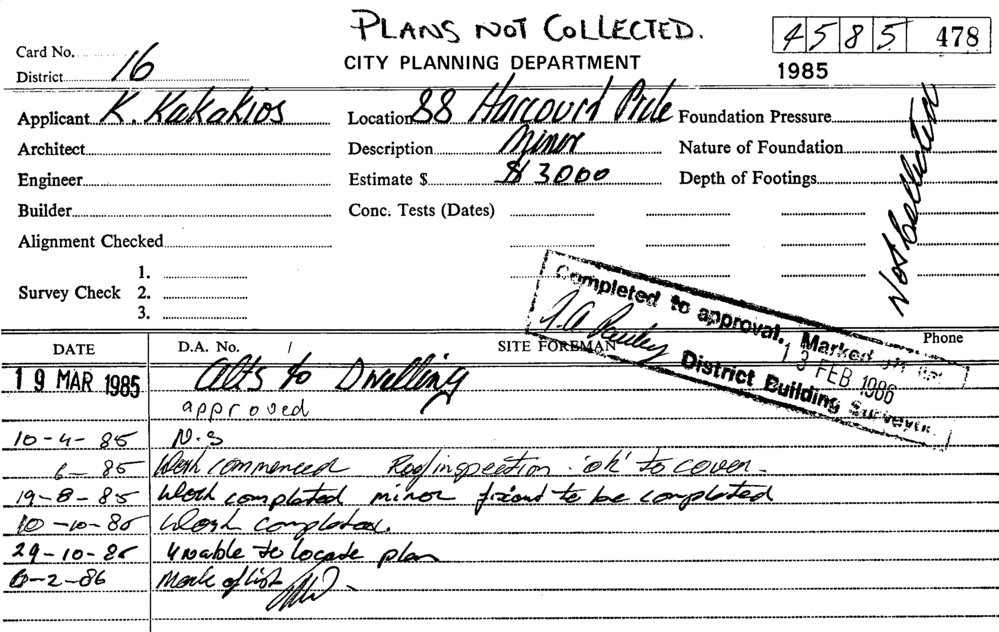 PLANS NOT COLLECTED.
4585 478
Card No.
CITY PLANNING DEPARTMENT
1985
District 16
Applicant K. Kakakios Location 88 Harcourd Prde Foundation Pressure
Architect Description Minor Nature of Foundation
Engineer Estimate $ $ 3000 Depth of Footings
Builder Conc. Tests (Dates)
Not Collected
Alignment Checked
1.
Survey Check 2.
3.
Completed to approval. Marked
13 FEB 1986
District Building Surveyor.
DATE D.A. No. SITE FOREMAN Phone
19 MAR 1985 Alts to Dwelling
approved
10-4-85 N.S
6-85 Work commenced Roof inspection 'ok' to cover-
19-8-85 Work completed minor to be completed
10-10-85 Work completed.
29-10-85 Unable to locate plan
6-2-86 Mark of list